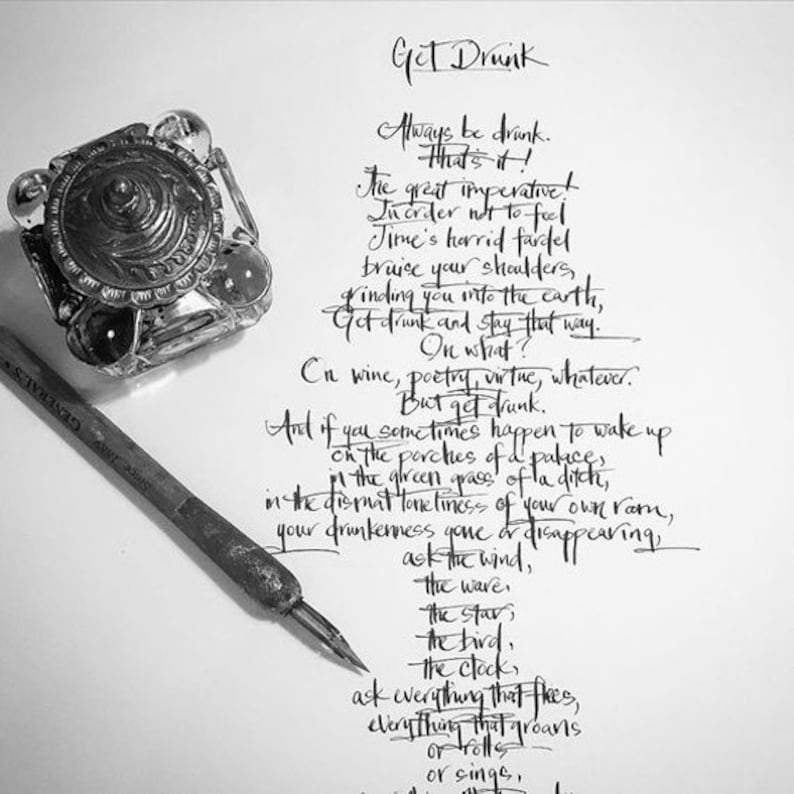 Get Drunk
Always be drunk.
That's it!
The great imperative!
In order not to feel
Time's horrid fardel
bruise your shoulders,
grinding you into the earth,
Get drunk and stay that way.
On what?
On wine, poetry, virtue, whatever.
But get drunk.
And if you sometimes happen to wake up
on the porches of a palace,
in the green grass of a ditch,
in the dismal loneliness of your own room,
your drunkenness gone or disappearing,
ask the wind,
the wave,
the star,
the bird,
the clock,
ask everything that flees,
everything that groans
or rolls
or sings,
GENERAL'S